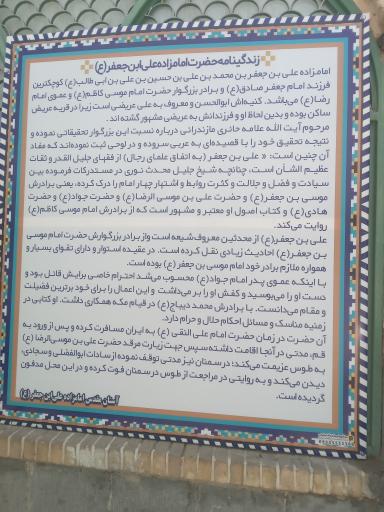 زندگینامه حضرت امامزاده علی ابن جعفر(ع)
امامزاده علی بن جعفر بن محمد بن علی بن حسین بن علی بن ابی طالب(ع) کوچکترین
فرزند امام جعفر صادق(ع) و برادر بزرگوار حضرت امام موسی کاظم(ع) و عموی امام
رضا(ع) می‌باشد. کنیه‌اش ابوالحسن و معروف به علی عریضی است زیرا در قریه عریض
ساکن بوده و بدین لحاظ او و فرزندانش به عریضی مشهور گشته اند.
مرحوم آیت الله علامه حائری مازندرانی درباره نسبت این بزرگوار تحقیقاتی نموده و
نتیجه تحقیق خود را با قصیده‌ای به عربی سروده و در لوحی ثبت نموده‌اند که مفاد
آن چنین است: « علی بن جعفر (به اتفاق علمای رجال) از فقهای جلیل القدر و ثقات
عظیم الشأن است، چنانچه شیخ جلیل محدث نوری در مستدرکات فرموده بین
سیادت و فضل و جلالت و کثرت روایط و اشتهار چهار امام را درک کرده، یعنی برادرش
موسی بن جعفر(ع) و حضرت علی بن موسی الرضا(ع) و حضرت جواد(ع) و حضرت
هادی(ع) و کتاب اصول او معتبر و مشهور است که از برادرش امام موسی کاظم(ع)
روایت می‌کند.
علی بن جعفر(ع) از محدثین معروف شیعه است و از برادر بزرگوارش حضرت امام موسی
بن جعفر(ع) احادیث زیادی نقل کرده است. در عقیده استوار و دارای تقوای بسیار و
همواره ملازم برادر خود امام موسی بن جعفر (ع) بوده است.
با اینکه عموی پدر امام جواد(ع) محسوب می‌شد احترام خاصی برایش قائل بود و
دست او را می‌بوسید و کفش او را بر می‌داشت و این اعمال را برای خود برترین فضیلت
و مقام می‌دانست. با برادرش محمد دیباج(ع) در قیام مکه همکاری داشت. او کتابی در
زمینه مناسک و مسائل احکام حلال و حرام دارد.
آن حضرت در زمان حضرت امام علی النقی (ع) به ایران مسافرت کرده و پس از ورود به
قم، مدتی در آنجا اقامت داشته سپس جهت زیارت مرقد حضرت علی بن موسی الرضا (ع)
به طوس عزیمت می‌کند؛ در سمنان نیز مدتی توقف نموده از سادات ابوالفضلی و سجادی،
دیدن می‌کند و به روایتی در مراجعت از طوس در سمنان فوت کرده و در این محل مدفون
گردیده است.
آستان مقدس امامزاده علی ابن جعفر (ع)